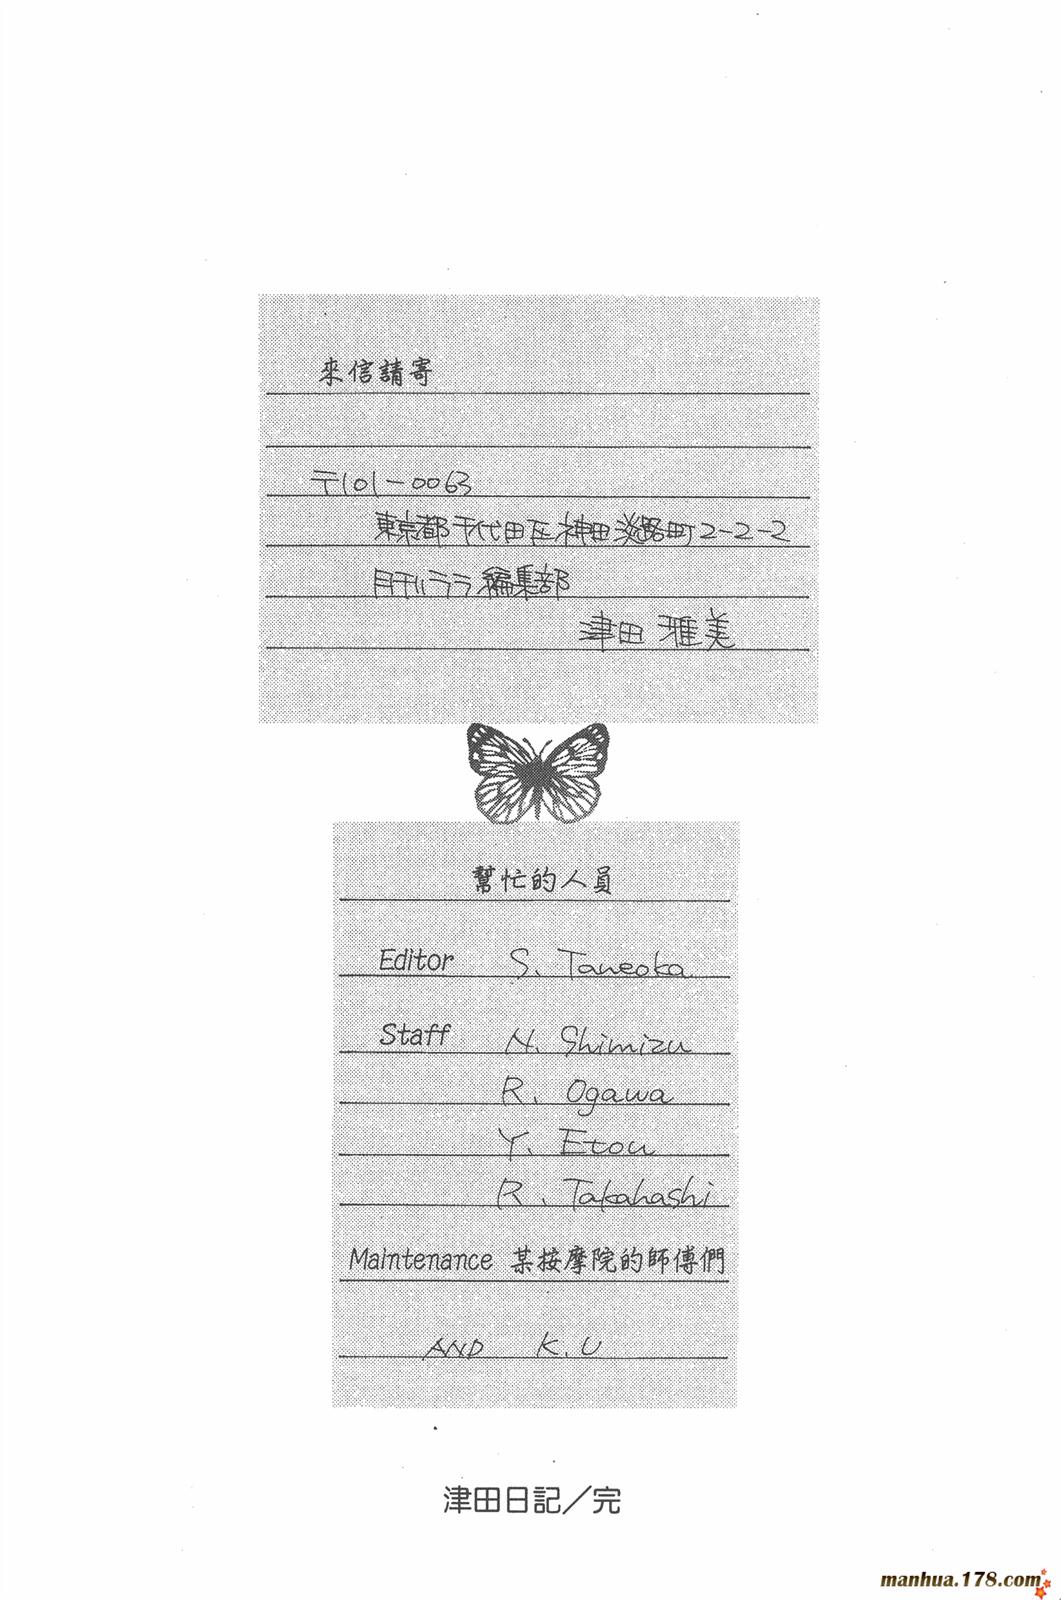 來信請寄
〒101-0063
東京都千代田区神田淡路町2-2-2
月刊ララ編集部
津田 雅美
幫忙的人員
Editor S. Taneoka
Staff N. Shimizu
R. Ogawa
Y. Etou
R. Takahashi
Maintenance 某按摩院的師傅們
AND K.U
津田日記／完
manhua.178.com